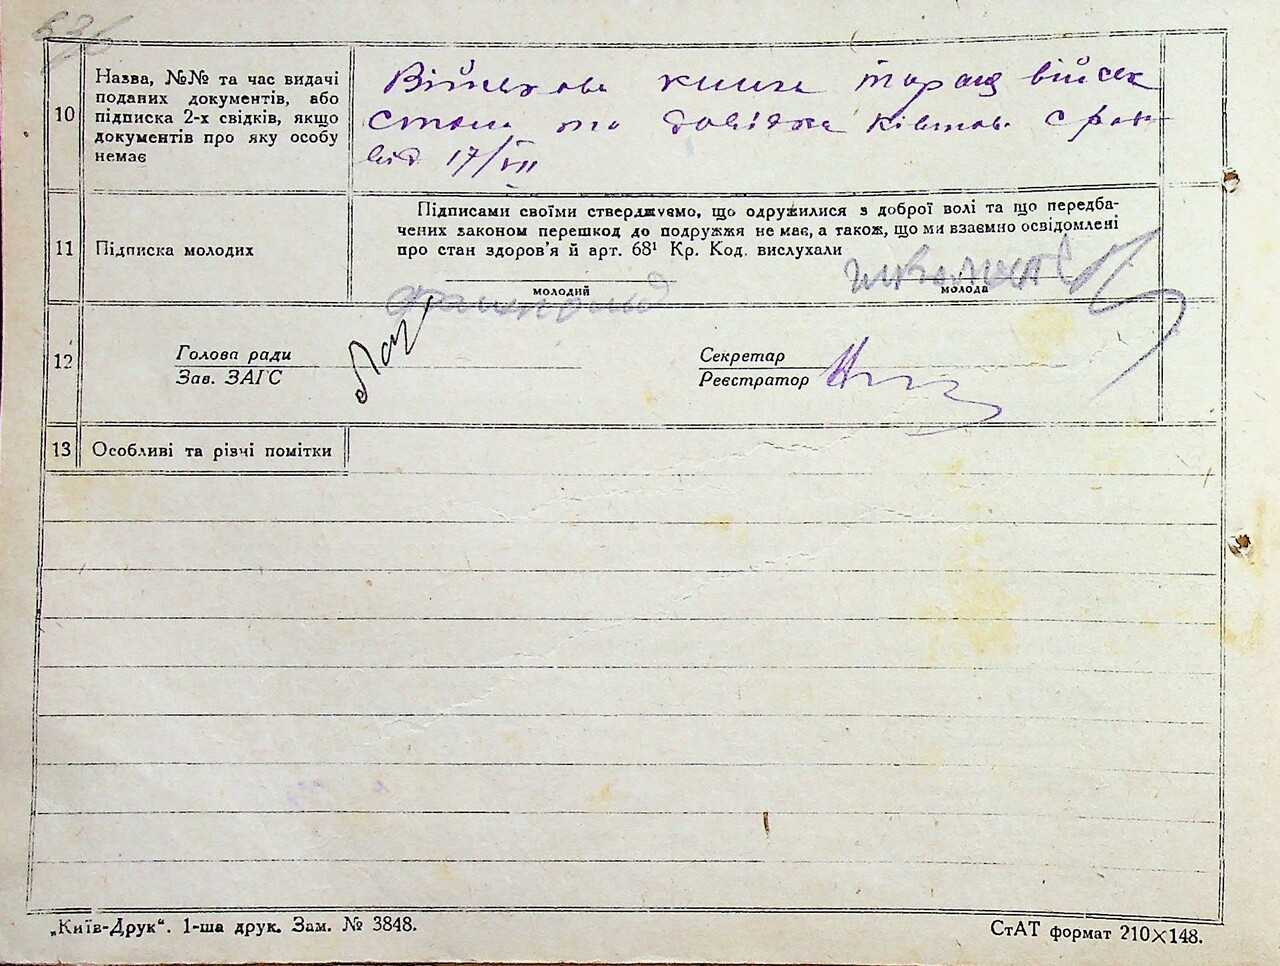 10 Назва, №№ та час видачі
поданих документів, або
підписка 2-х свідків, якщо
документів про яку особу
немає
Військова книга Таращ військ
стола та довідка
від 17/VII
11 Підписка молодих
Підписами своїми стверджуємо, що одружилися з доброї волі та що передба-
чених законом перешкод до подружжя не має, а також, що ми взаємно освідомлені
про стан здоров'я й арт. 68¹ Кр. Код. вислухали
молодий молода
12 Голова ради
Зав. ЗАГС
Секретар
Реєстратор
13 Особливі та різні помітки
„Київ-Друк“. 1-ша друк. Зам. № 3848.
СтАТ формат 210×148.